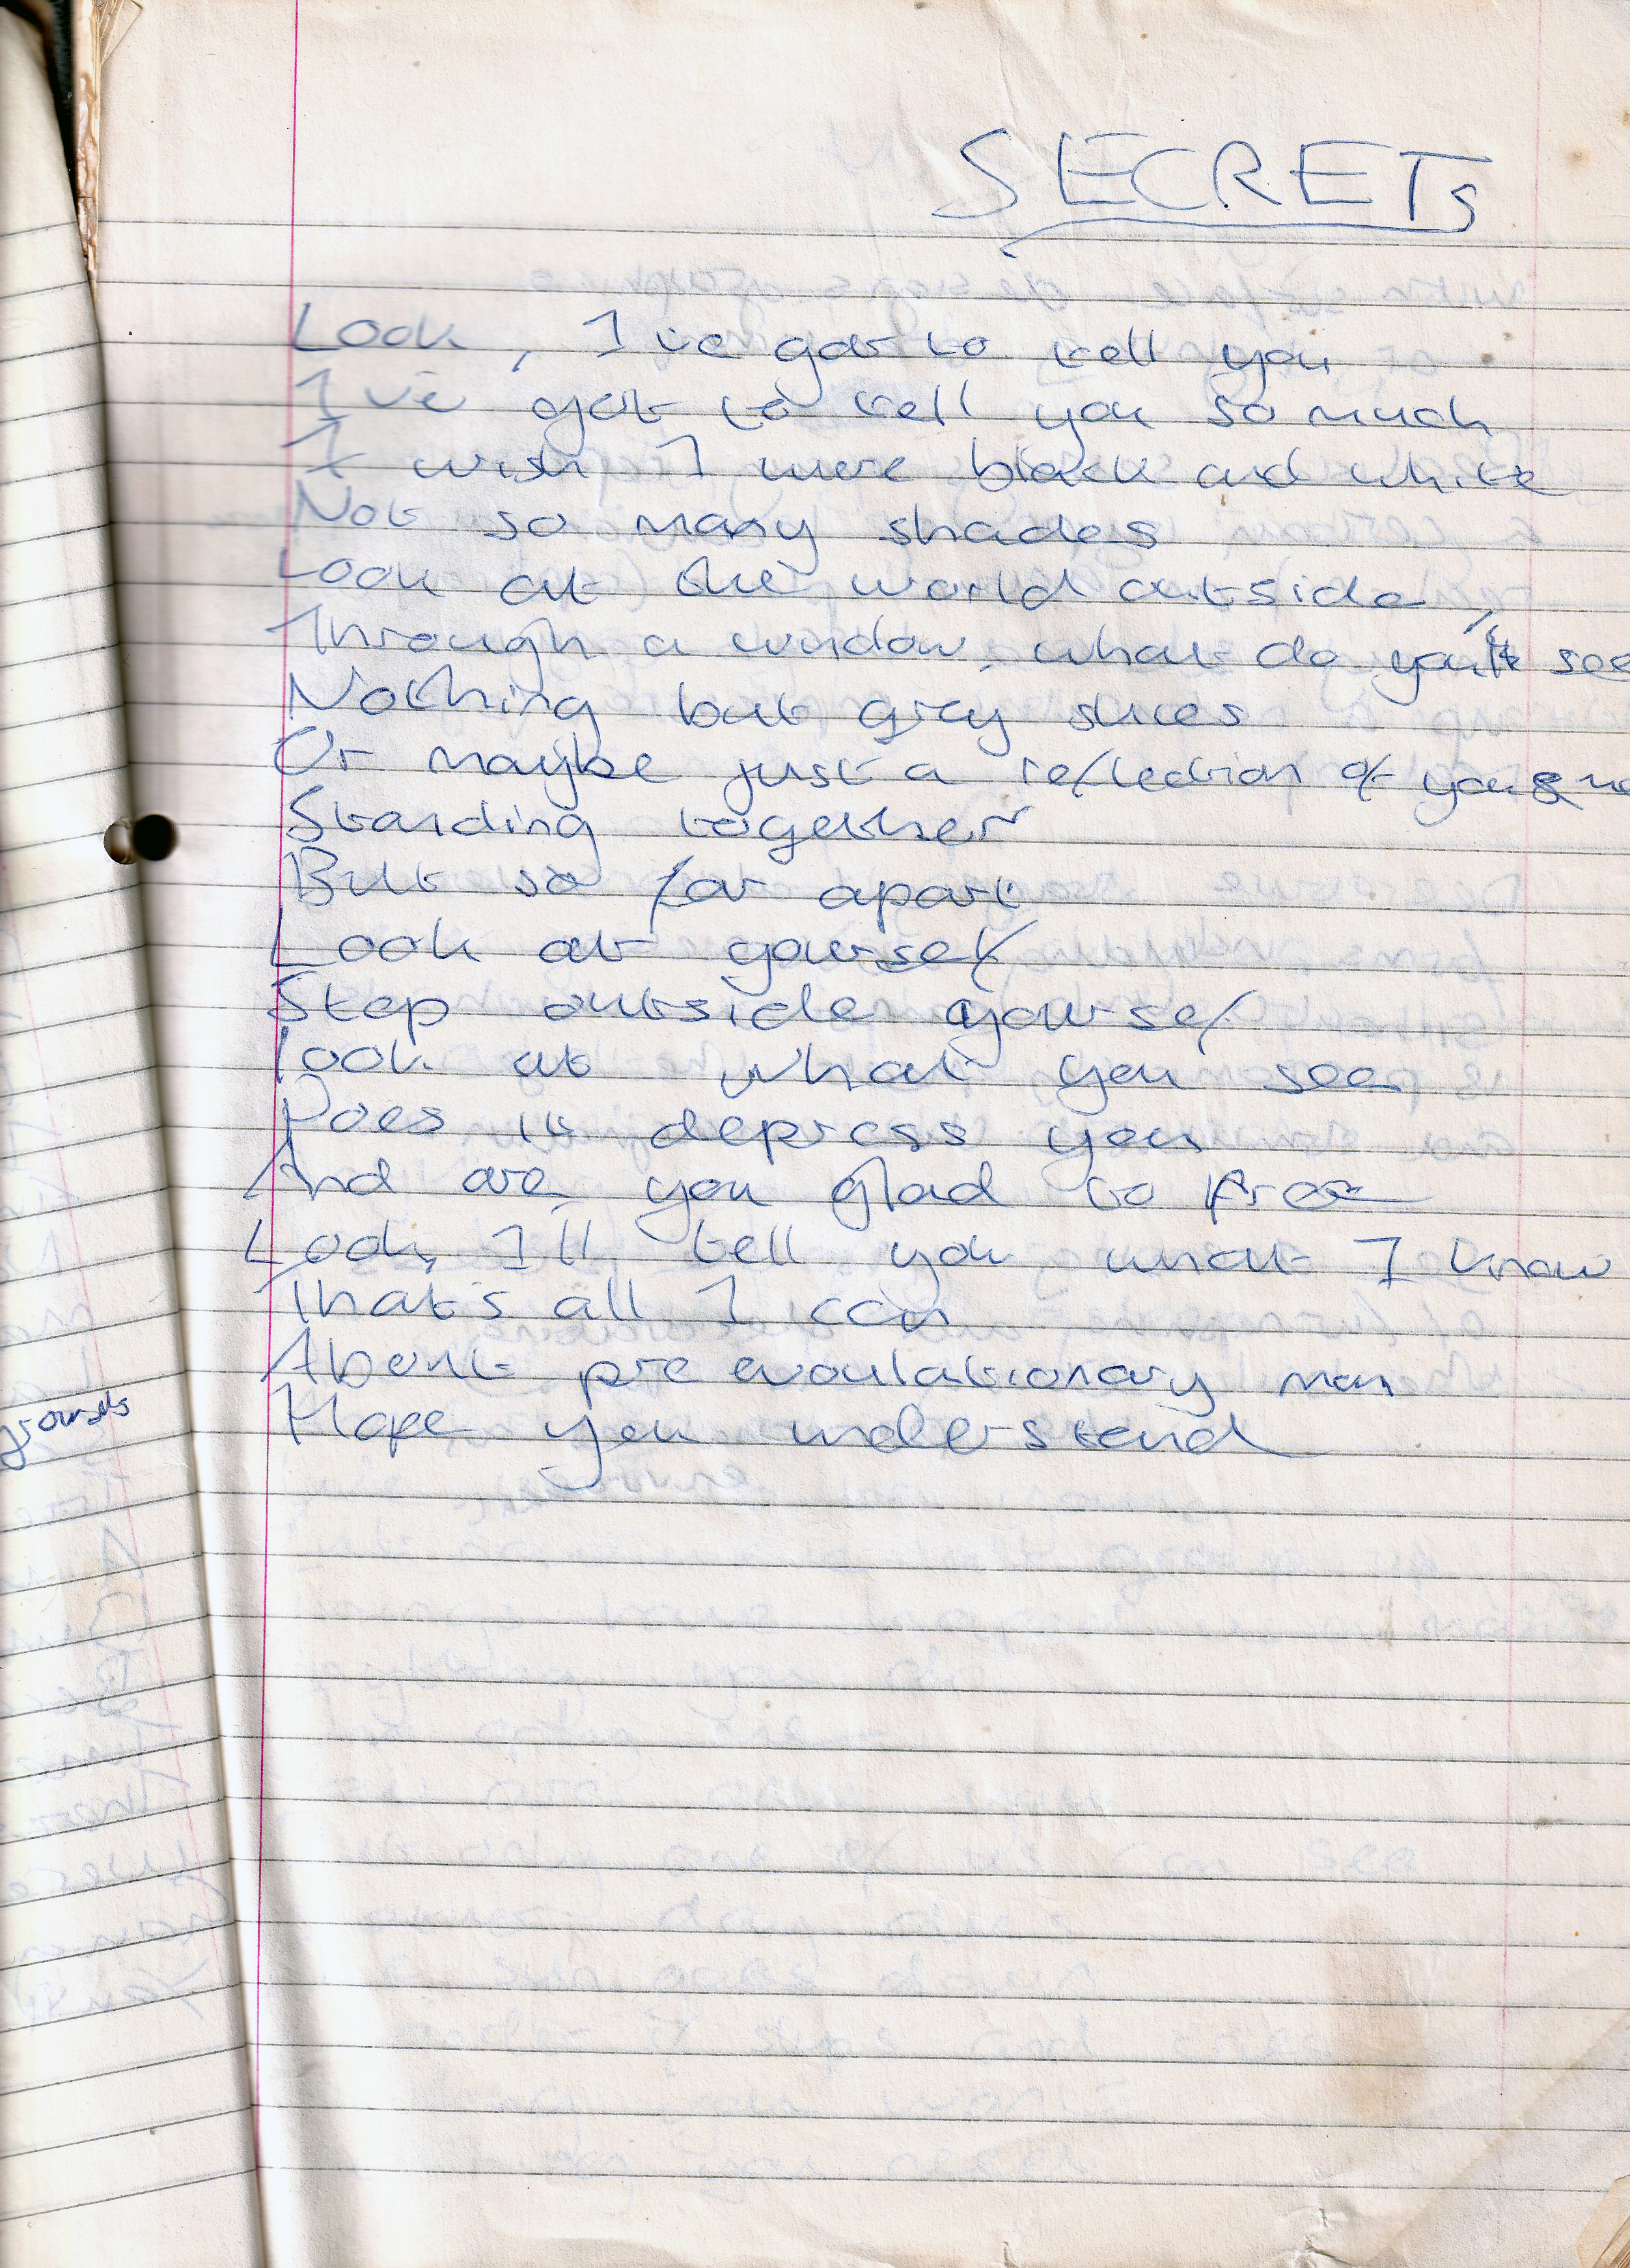 SECRETS
Look, I've got to tell you
I've got to tell you so much
I wish I were black and white
Not so many shades
Look at the world outside,
Through a window, what do you see
Nothing but grey skies
Or maybe just a reflection of you & me
Standing together
But so far apart
Look at yourself
Step outside yourself
Look at what you see
Does it depress you
And are you glad to free
Look, I'll tell you what I know
That's all I can
About pre evoulationary man
Hope you understand
grounds